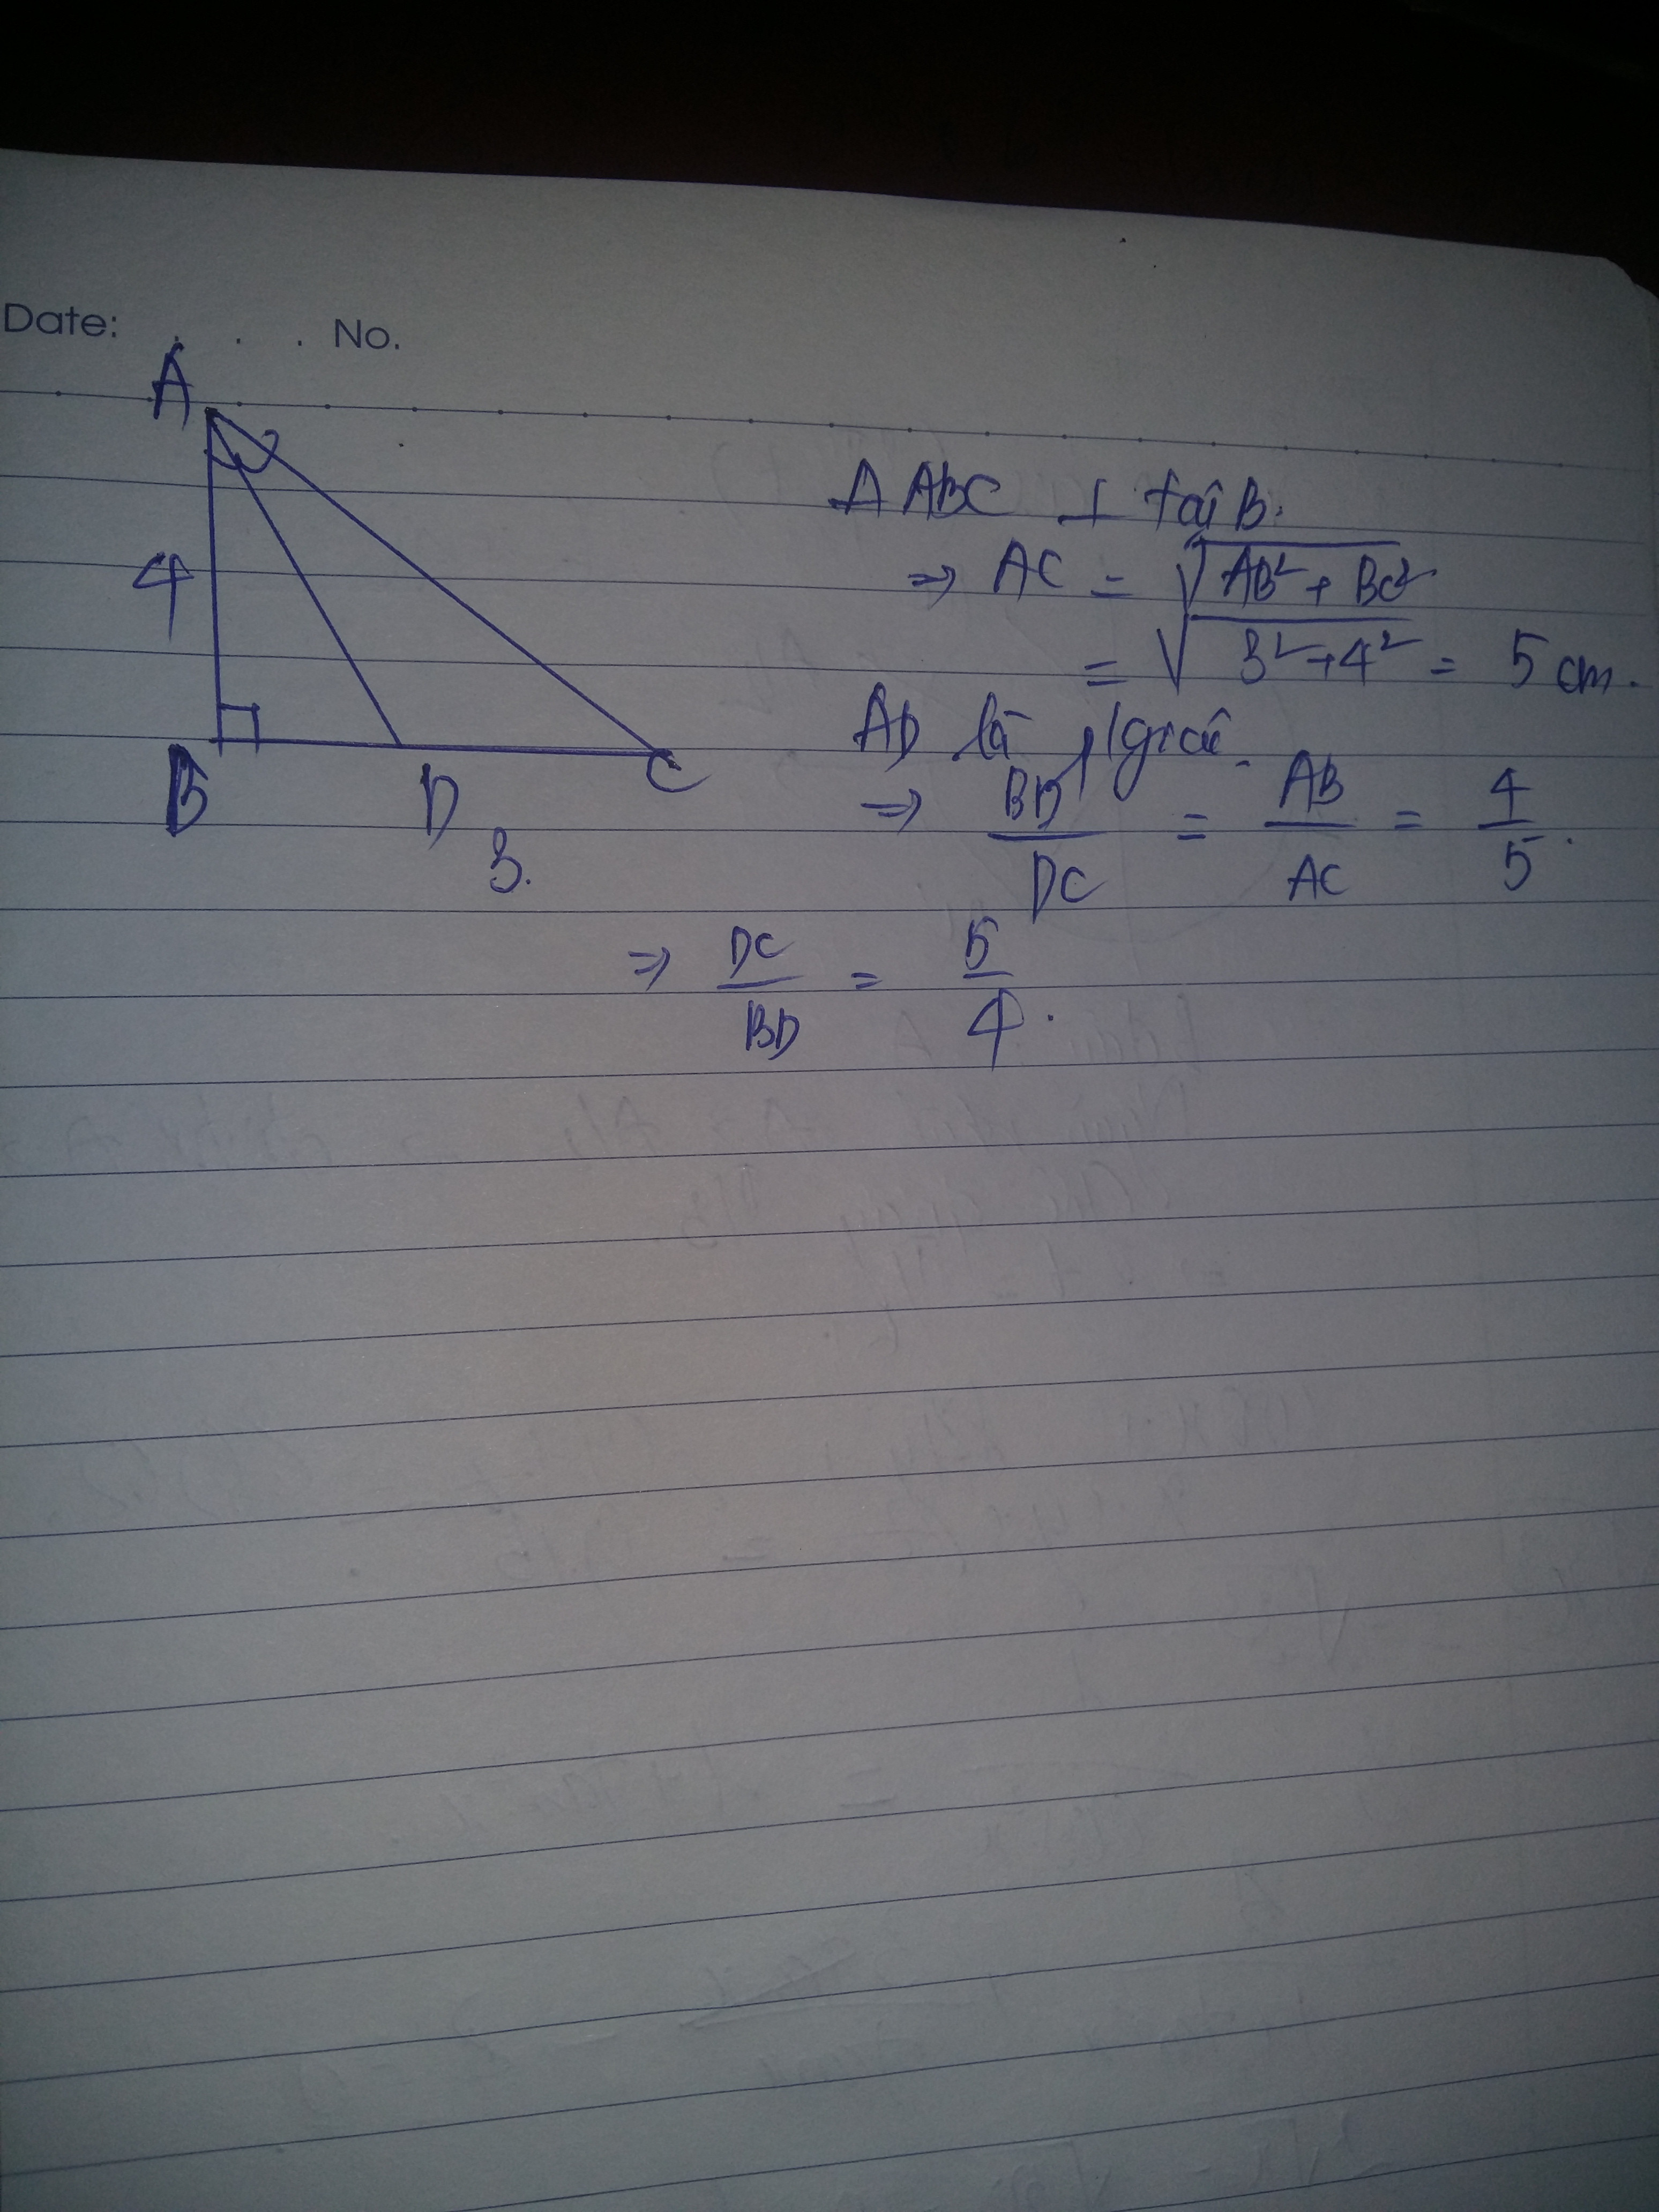 Date: . . . No.
A
4
B D C
3.
Δ ABC ⊥ tại B.
=> AC = √(AB² + BC²)
= √(3²+4²) = 5 cm.
AD là p/giác.
=> BD/DC = AB/AC = 4/5.
=> DC/BD = 5/4.